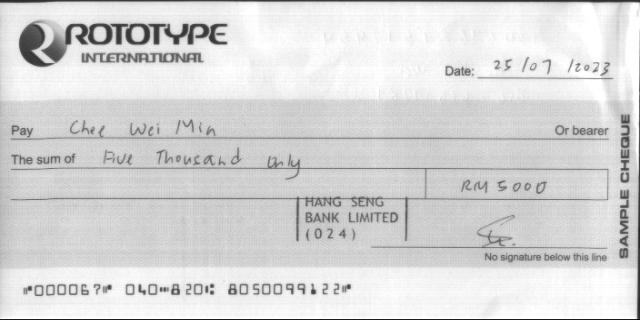 ROTOTYPE
INTERNATIONAL
Date: 25/07/2023
Pay Chee Wei Min Or bearer
The sum of Five Thousand only
RM 5000
HANG SENG
BANK LIMITED
(024)
No signature below this line
SAMPLE CHEQUE
⑈000067⑈ 040⑉820⑆ 8050099122⑈